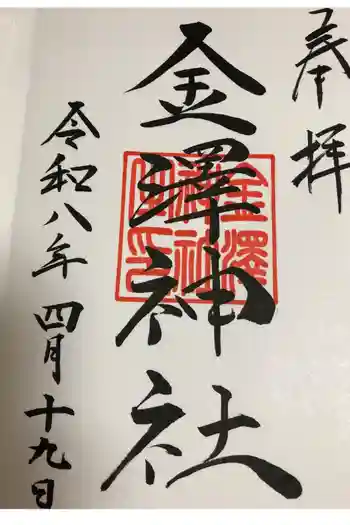 奉拝
金澤神社
金澤神社之印
令和八年四月十九日